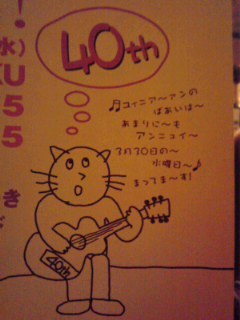 !
水)
U
55
き
40th
♬コイニア〜アンの
ばあいは〜
あまりに〜も
アンニュイ〜
3月30日の〜
水曜日〜♪
まってま〜す!
40th